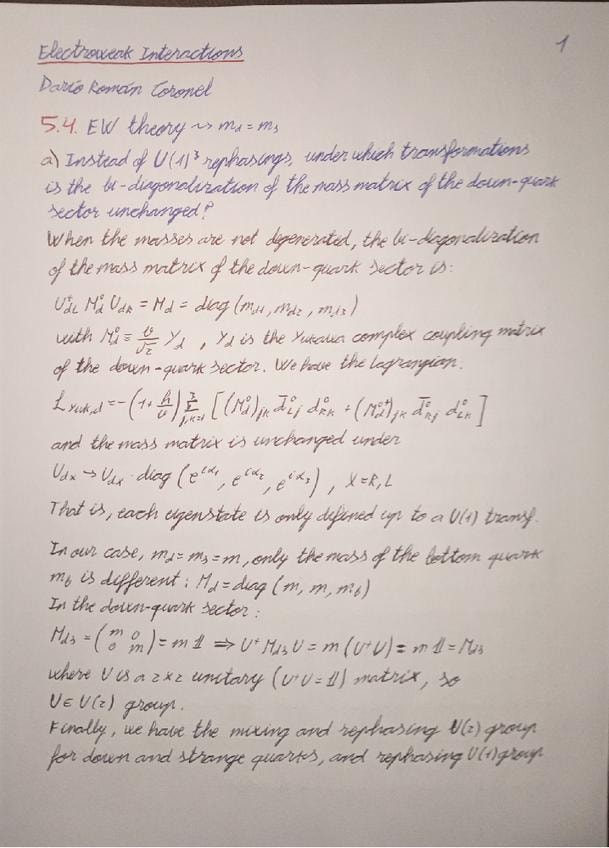 Electroweak Interactions
1
Darío Román Coronel
5.4. EW theory ~> m_d = m_s
a) Instead of U(1)³ rephasings, under which transformations
is the bi-diagonalization of the mass matrix of the down-quark
sector unchanged?
When the masses are not degenerated, the bi-diagonalization
of the mass matrix of the down-quark sector is:
U_dL^† M_d^0 U_dR = M_d = diag (m_d1, m_d2, m_d3)
with M_d^0 = v/√2 Y_d , Y_d is the Yukawa complex coupling matrix
of the down-quark sector. We have the lagrangian.
L_Yuk,d = -(1 + h/v) Σ_{j,k=1}^3 [(M_d^0)_jk d̄_Lj^0 d_Rk^0 + (M_d^0†)_jk d̄_Rj^0 d_Lk^0]
and the mass matrix is unchanged under
U_dX → U_dX · diag (e^{iα_1}, e^{iα_2}, e^{iα_3}) , X = R, L
That is, each eigenstate is only defined up to a U(1) transf.
In our case, m_d = m_s = m, only the mass of the bottom quark
m_b is different: M_d = diag (m, m, m_b)
In the down-quark sector:
M_ds = (m 0
0 m) = m 𝟙 ⇒ U† M_ds U = m (U†U) = m 𝟙 = M_ds
where U is a 2×2 unitary (U†U = 𝟙) matrix, so
U ∈ U(2) group.
Finally, we have the mixing and rephasing U(2) group
for down and strange quarks, and rephasing U(1) group